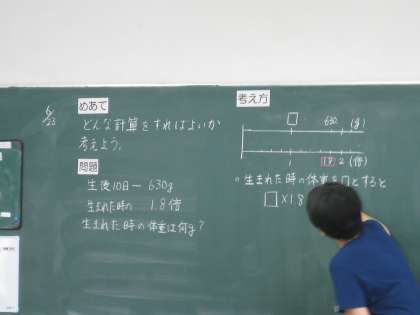 6/23
めあて
どんな計算をすればよいか
考えよう。
問題
生後10日〜 630g
生まれた時の…1.8倍
生まれた時の体重は何g?
考え方
□ 630 (g)
1 1.8 2 (倍)
○生まれた時の体重を□とすると
□×1.8